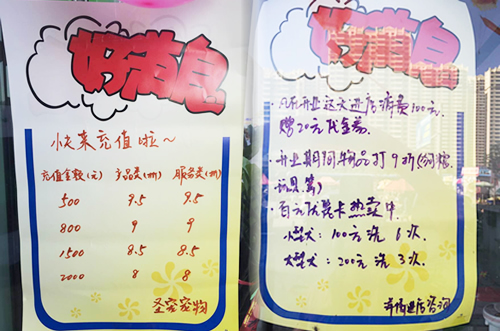 好消息
快来充值啦～
充值金额(元) 产品类(折) 服务类(折)
500 9.5 9.5
800 9 9
1500 8.5 8.5
2000 8 8
圣宠宠物
好消息
·凡在开业这天进店消费100元.
赠20元代金券.
·开业期间物品打9折(狗粮.
玩具等)
·百元优惠卡热卖中.
小型犬：100元洗6次.
大型犬：200元洗3次.
详情进店咨询